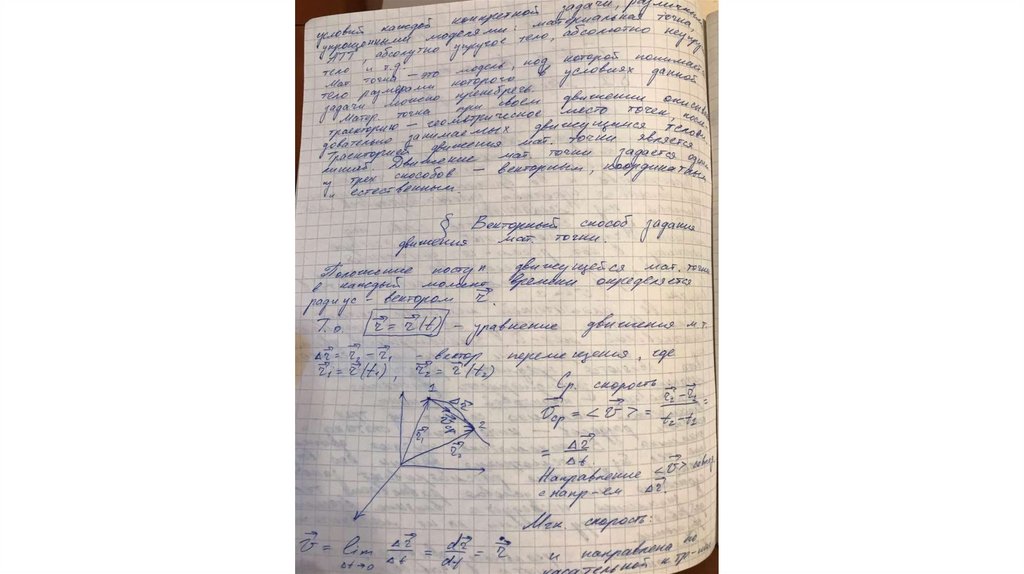 условий каждой конкретной задачи, различными
упрощенными моделями: материальная точка,
АТТ, абсолютно упругое тело, абсолютно неупру-
тело и т.д.
Мат. точка – это модель, под которой понимает
тело размерами которого в условиях данной
задачи можно пренебречь.
Матер. точка при своем движении описыва
траекторию – геометрическое место точек, после-
довательно занимаемых движущимся телом.
Траекторией движения мат. точки является
линия. Движение мат. точки задается одним
из трех способов – векторным, координатным
и естественным
§ Векторный способ задания
движения мат. точки.
Положение поступ движущейся мат. точки
в каждый момент времени определяется
радиус-вектором r⃗.
Т.о. r⃗ = r⃗(t) – уравнение движения м.т.
Δr⃗ = r⃗₂ – r⃗₁ – вектор перемещения, где
r⃗₁ = r⃗(t₁), r⃗₂ = r⃗(t₂)
Ср. скорость
v⃗ср = <v⃗> = (r⃗₂ – r⃗₁)/(t₂ – t₁) =
= Δr⃗/Δt
1 Δr⃗ 2
r⃗₁ r⃗₂
Направление <v⃗> совпад.
с напр-ем Δr⃗.
Мгн. скорость:
v⃗ = lim Δt→0 Δr⃗/Δt = dr⃗/dt = r⃗̇ и направлена по
касательной к тр-